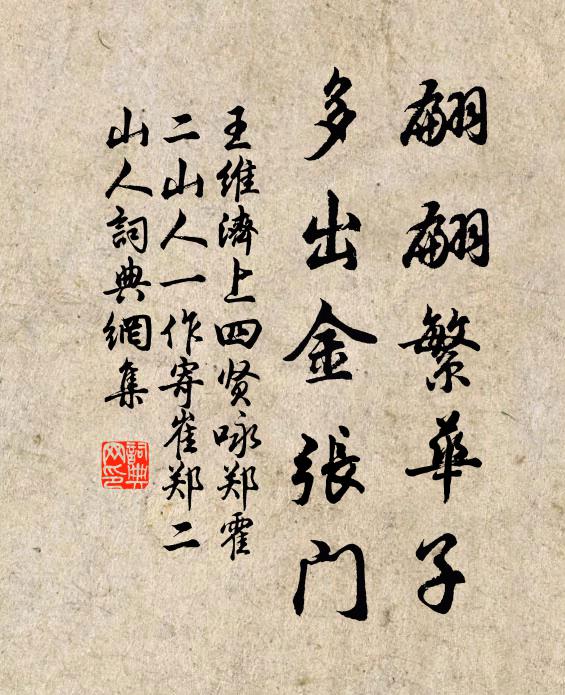 翩翩繁華子
多出金張门
王维濟上四贤咏郑霍
二山人一作寄崔郑二
山人詞典網集
詞典网印